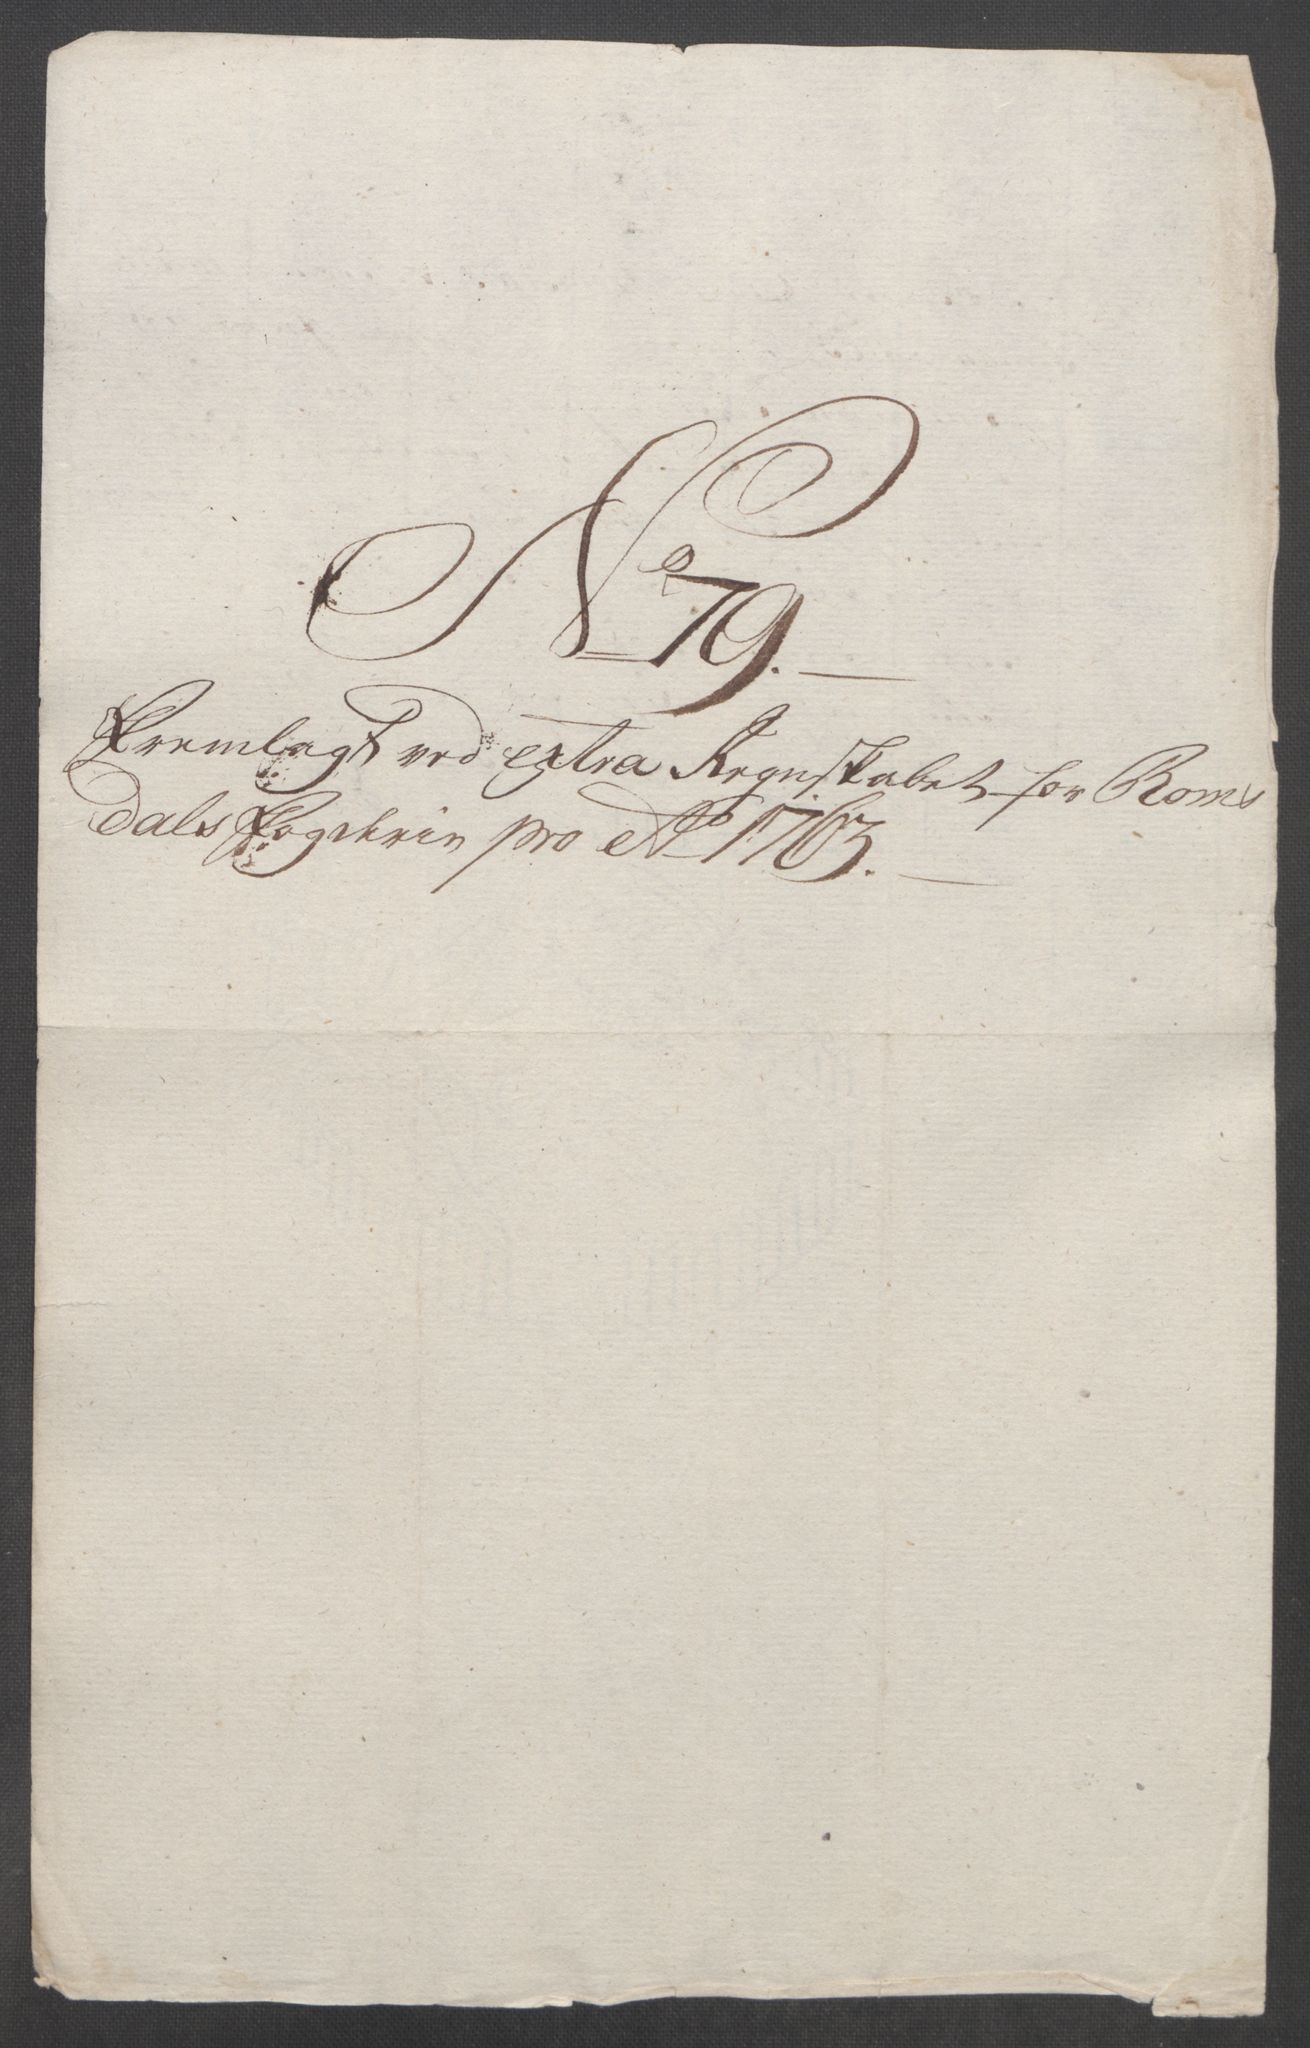 No 79.
Fremlagt ved extra Regnskabet for Roms
dals Fogderie pro Ao 1763.